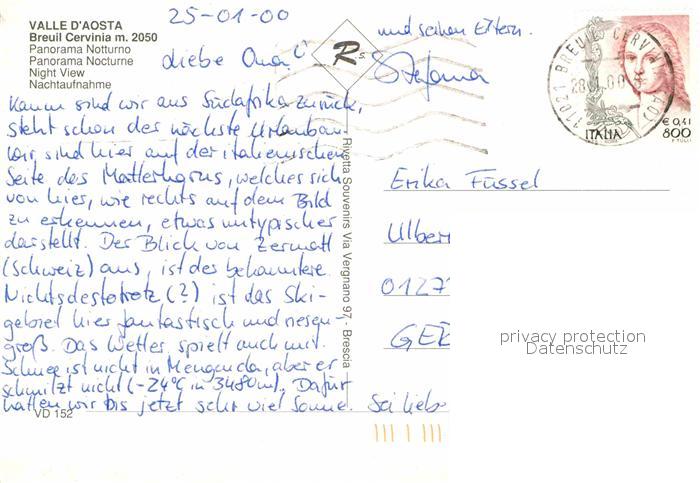 25-01-00
VALLE D'AOSTA
Breuil Cervinia m. 2050
Panorama Notturno
Panorama Nocturne
Night View
Nachtaufnahme
liebe Oma
Kaum sind wir aus Südafrika zurück,
steht schon der nächste Urlaub an.
Wir sind hier auf der italienischen
Seite des Matterhorns, welches sich
von hier, wie rechts auf dem Bild
zu erkennen, etwas untypischer
darstellt. Der Blick von Zermatt
(Schweiz) aus, ist der bekanntere.
Nichtsdestotrotz (?) ist das Ski-
gebiet hier fantastisch und riesen-
groß. Das Wetter spielt auch mit.
Schnee ist nicht in Mengen da, aber er
schmilzt nicht (-24°C in 3480m). Dafür
hatten wir bis jetzt sehr viel Sonne. Sei liebe
und seinen Eltern.
Stefanie
VD 152
Rs.
Rivetta Souvenirs Via Vergnano 97 - Brescia
11021 BREUIL CERVINIA (AO)
ITALIA
€ 0,41
800
Erika Füssel
Ulber
0127
GER
privacy protection
Datenschutz